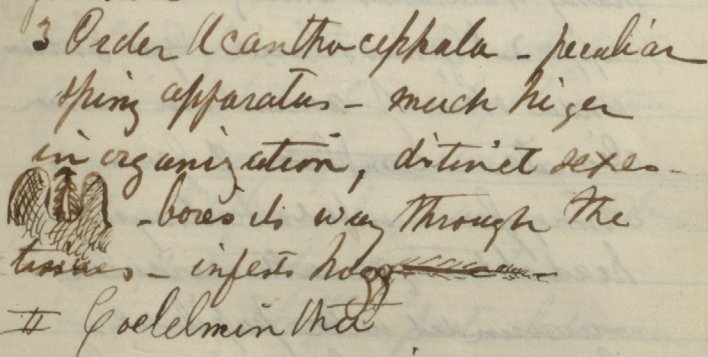 3 Order Acanthocephala - peculiar
spiny apparatus - much higer
in organization, ditinct sexes -
- bores its way through the
tissues - infests hogs
II Coelelmintha